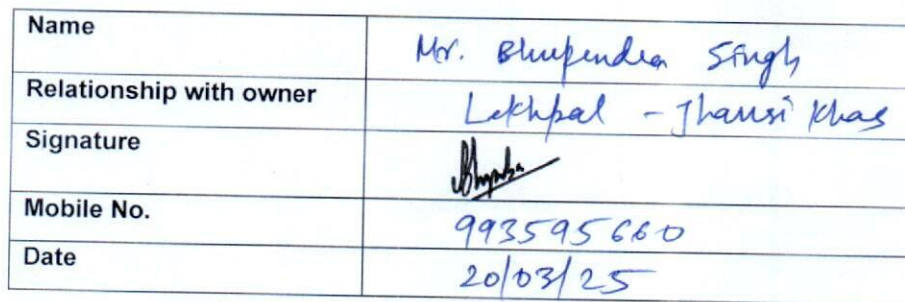 Name Mr. Bhupendra Singh
Relationship with owner Lekhpal - Jhansi Khas
Signature
Mobile No. 993595660
Date 20/03/25